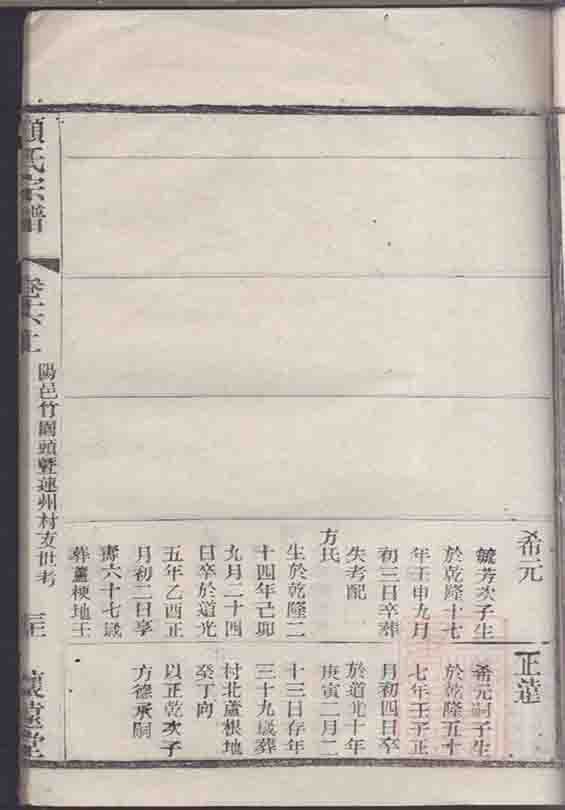 希元
毓芳次子生
於乾隆十七
年壬申九月
初三日卒葬
失考配
方氏
生於乾隆二
十四年己卯
九月二十四
日卒於道光
五年乙酉正
月初二日享
壽六十七歲
葬蘆梗地壬
正蓮
希元嗣子生
於乾隆五十
七年壬子正
月初四日卒
於道光十年
庚寅二月二
十三日存年
三十九歲葬
村北蘆根地
癸丁向
以正乾次子
方德承嗣
顧氏宗譜
卷六上
陽邑竹園頭暨蓮州村支世考